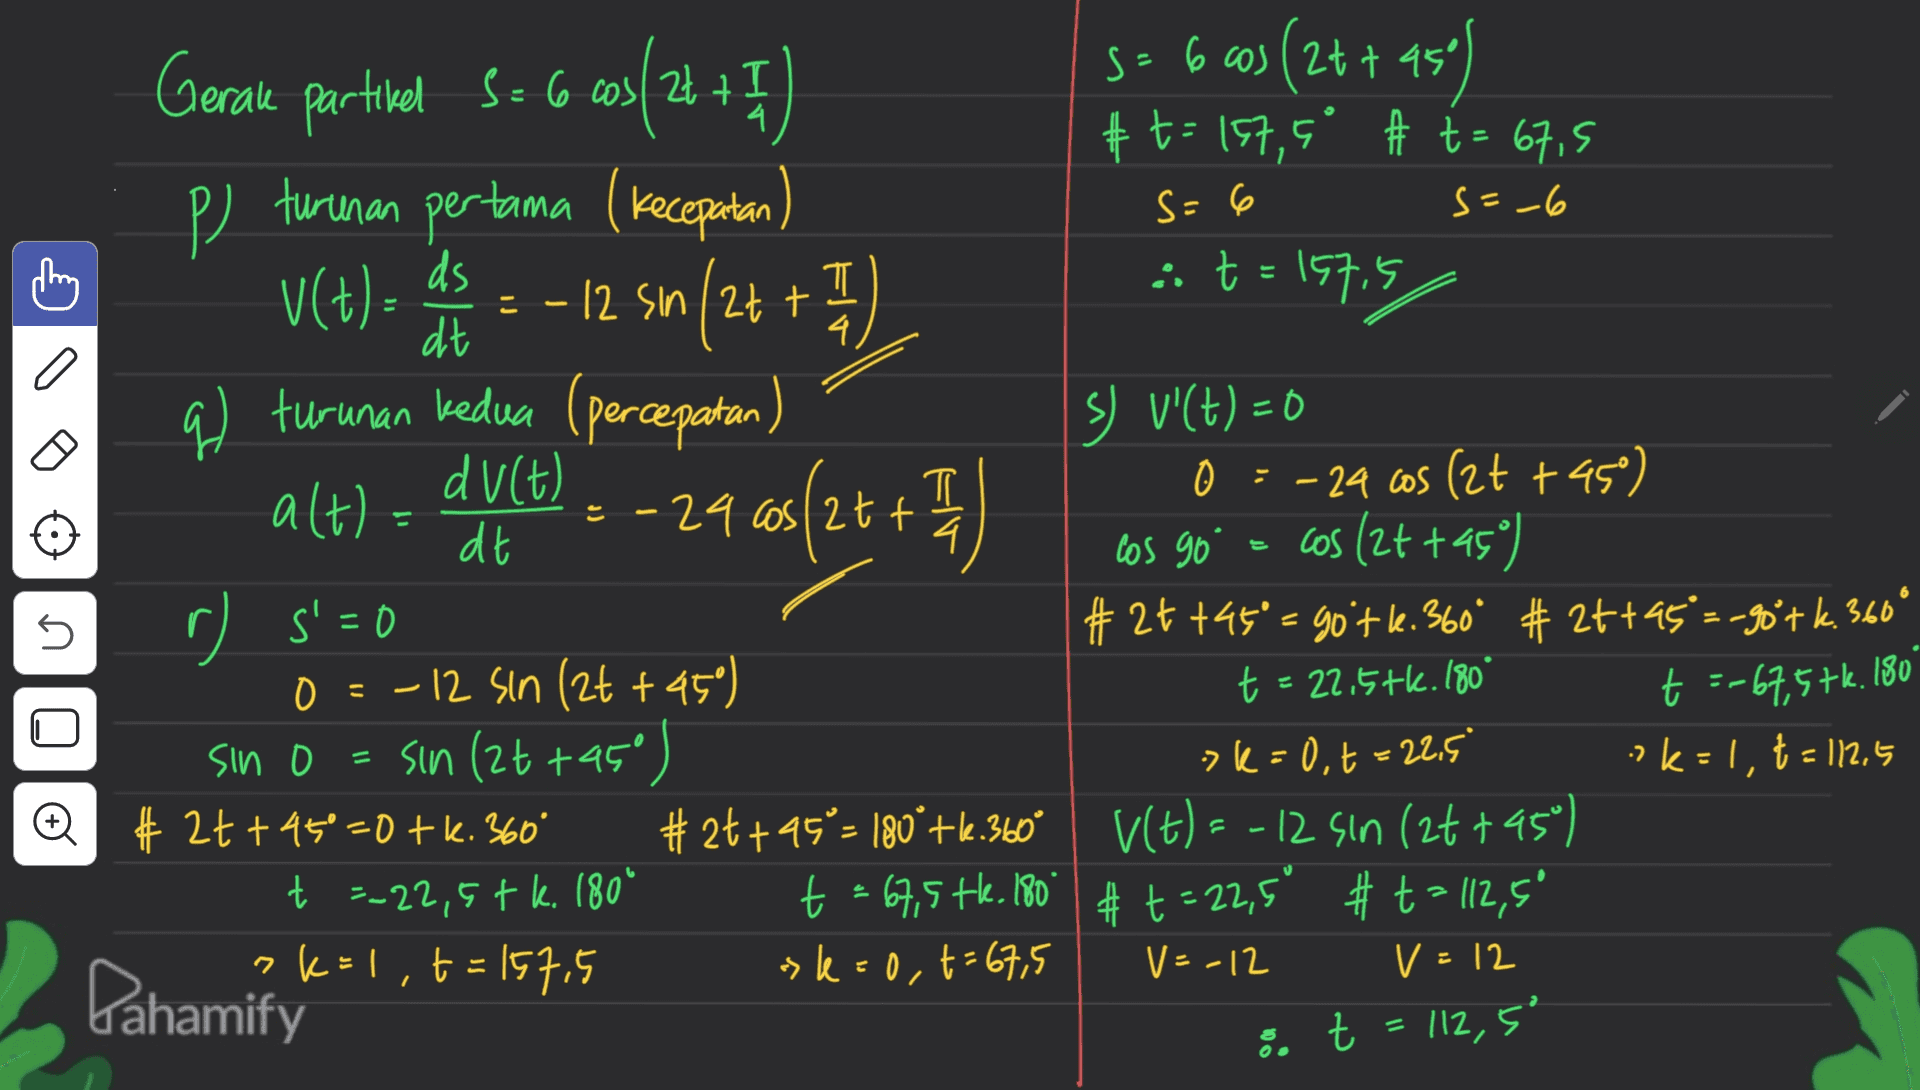 Gerak partikel S = 6 cos(2t + π/4)
p) turunan pertama (kecepatan)
V(t) = ds/dt = -12 sin(2t + π/4)
q) turunan kedua (percepatan)
a(t) = dV(t)/dt = -24 cos(2t + π/4)
r) s' = 0
0 = -12 sin (2t + 45°)
sin 0 = sin (2t + 45°)
# 2t + 45° = 0 + k. 360°
t = -22,5 + k. 180°
> k = 1, t = 157,5
# 2t + 45° = 180° + k.360°
t = 67,5 + k. 180°
> k = 0, t = 67,5
S = 6 cos (2t + 45°)
# t = 157,5° # t = 67,5
S = 6 S = -6
∴ t = 157,5
s) V'(t) = 0
0 = -24 cos (2t + 45°)
cos 90° = cos (2t + 45°)
# 2t + 45° = 90° + k. 360°
t = 22,5 + k. 180°
> k = 0, t = 22,5°
# 2t + 45° = -90° + k. 360°
t = -67,5 + k. 180°
> k = 1, t = 112,5
V(t) = -12 sin (2t + 45°)
# t = 22,5° # t = 112,5°
V = -12 V = 12
∴ t = 112,5°
Pahamify